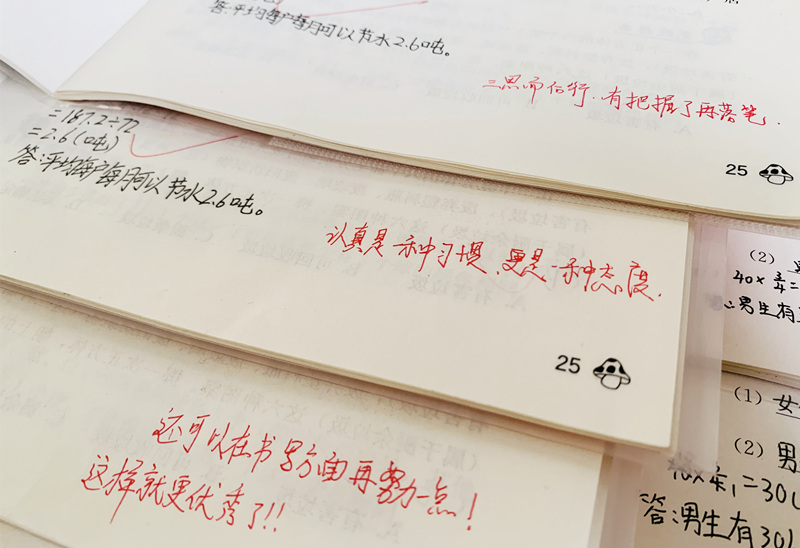 答:平均每户每月可以节水2.6吨。
三思而后行,有把握了再落笔.
25
=187.2÷72
=2.6(吨)
答:平均每户每月可以节水2.6吨。
认真是一种习惯,更是一种态度.
25
还可以在书写方面再努力一点!
这样就更优秀了!!
(2)
40×3/4=
∴男生有3
(1) 女
(2) 男
=30(
答:男生有30